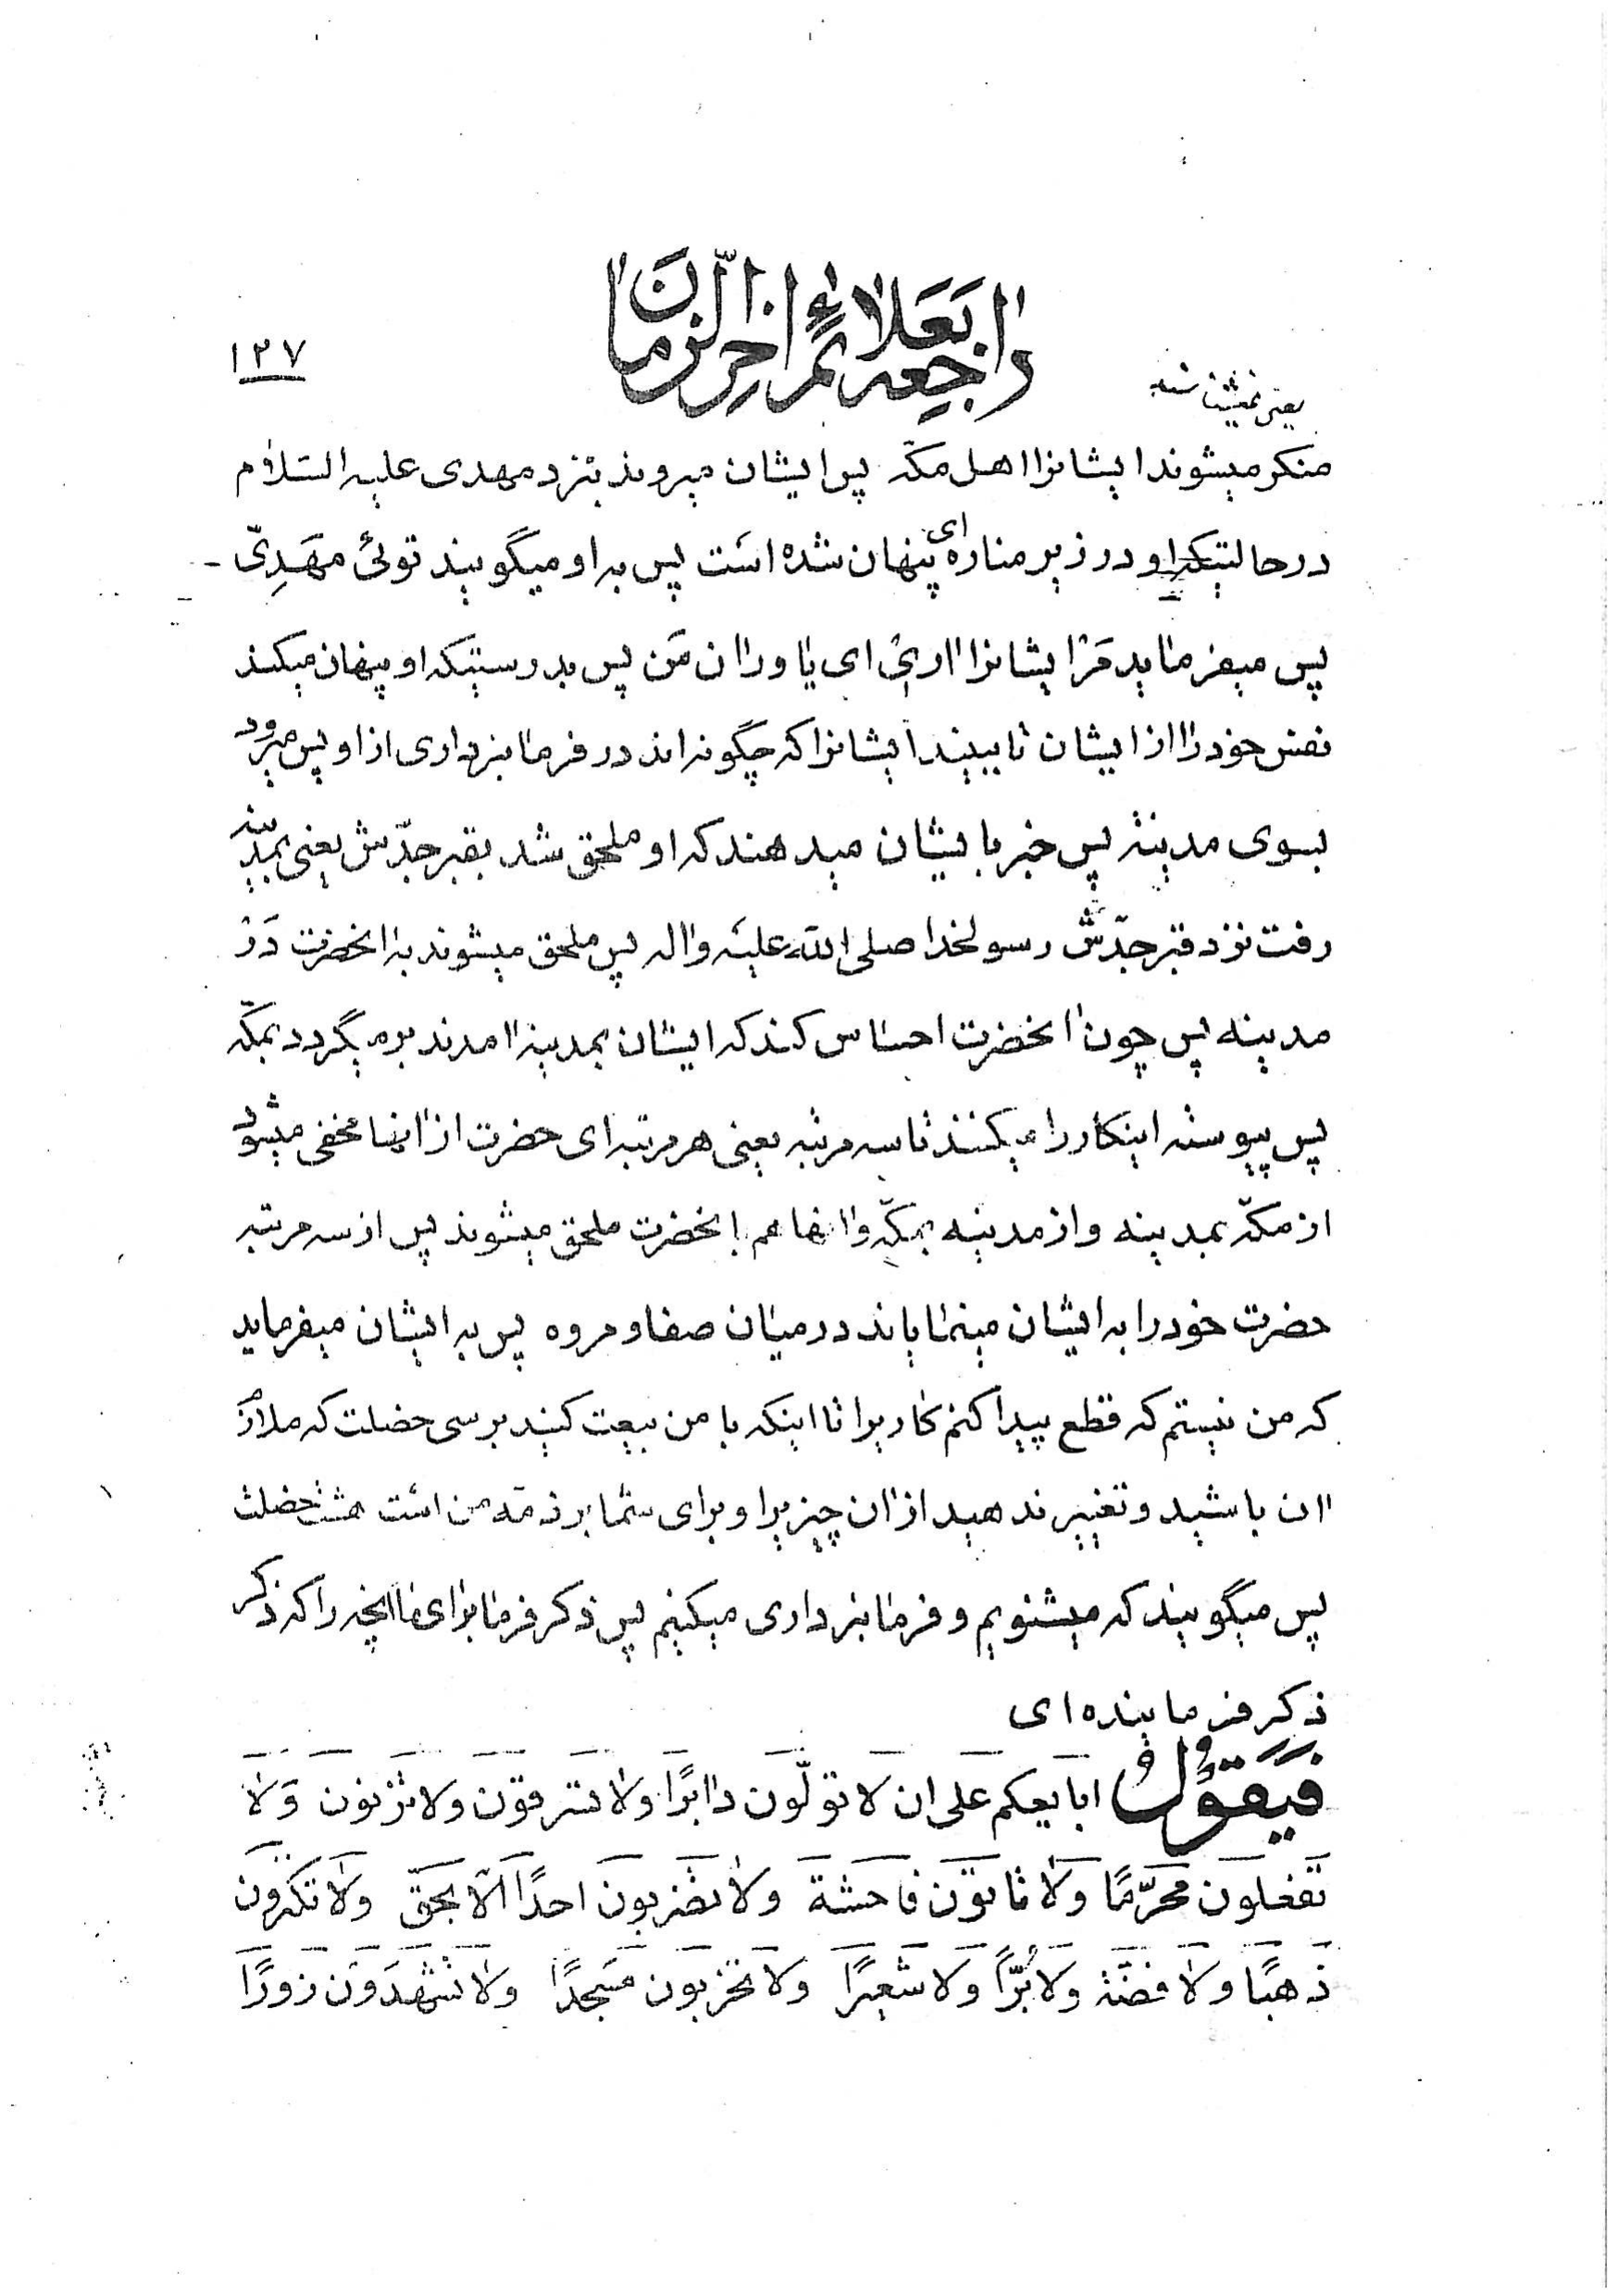 راجعه بعلائم اخر الزمان
۱۲۷
یعنی نمیشناسند
منکر میشوند ایشانرا اهل مکّه پس ایشان میروند بنزد مهدی علیه السّلام
در حالتیکه او در زیر مناره‌ای پنهان شده است پس به او میگویند توئی مهدیّ
پس میفرماید مر ایشانرا اری ای یاوران من پس بدرستیکه او پنهان میکند
نفس خود را از ایشان تا ببیند ایشانرا که چگونه‌اند در فرمانبرداری از او پس میرود
بسوی مدینه پس خبر بایشان میدهند که او ملحق شد بقبر جدّش یعنی بمدینه
رفت نزد قبر جدّش رسولخدا صلی الله علیه واله پس ملحق میشوند به انحضرت در
مدینه پس چون انحضرت احساس کند که ایشان بمدینه امدند برمیگردد بمکّه
پس پیوسته اینکار را میکنند تا سه مرتبه یعنی هر مرتبه‌ای حضرت از انها مخفی میشود
از مکّه بمدینه و از مدینه بمکّه و انها هم بانحضرت ملحق میشوند پس از سه مرتبه
حضرت خود را به ایشان مینمایاند در میان صفا و مروه پس به ایشان میفرماید
که من نیستم که قطع پیدا کنم کاریرا تا اینکه با من بیعت کنید بر سی خصلت که ملازم
ان باشید و تغییر ندهید از ان چیزیرا و برای شما بر ذمّه من است هشت خصلت
پس میگویند که میشنویم و فرمانبرداری میکنیم پس ذکر فرما برای ما انچه را که ذکر
ذکر فرماینده‌ای
فیقول ابایعکم علی ان لا تولّون دابرًا ولا تسرقون ولا تزنون ولا
تفعلون محرّمًا ولا تاتون فاحشة ولا تضربون احدًا الّا بحقّ ولا تکنزون
ذهبًا ولا فضّة ولا برًّا ولا شعیرًا ولا تخربون مسجدًا ولا تشهدون زورًا